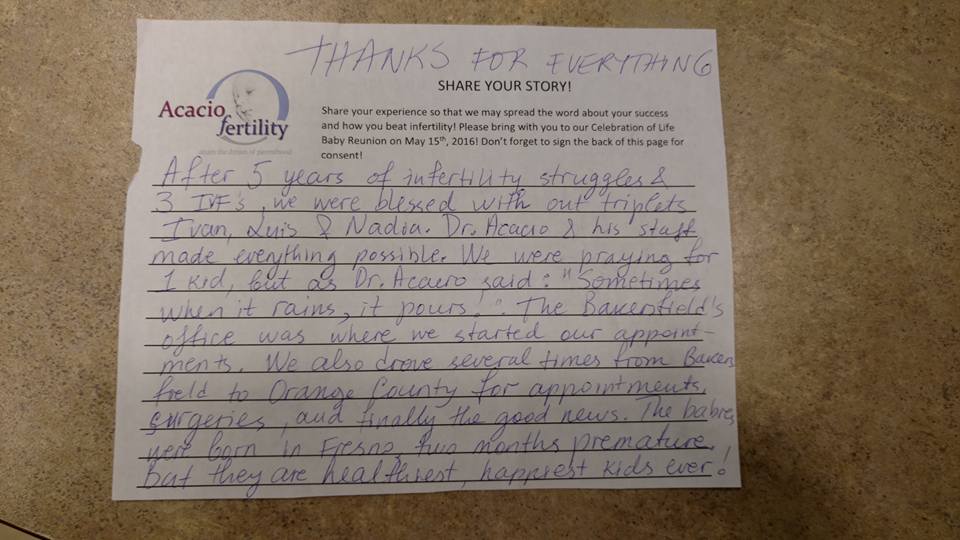 THANKS FOR EVERYTHING
SHARE YOUR STORY!
Acacio
fertility
Share your experience so that we may spread the word about your success
and how you beat infertility! Please bring with you to our Celebration of Life
Baby Reunion on May 15th, 2016! Don't forget to sign the back of this page for
consent!
After 5 years of infertility struggles &
3 IVF's, we were blessed with out triplets
Ivan, Luis & Nadia. Dr. Acacio & his staff
made everything possible. We were praying for
1 kid, but as Dr. Acacio said: "Sometimes
when it rains, it pours!". The Bakersfield's
office was where we started our appoint-
ments. We also drove several times from Bakers
field to Orange County for appointments,
surgeries, and finally the good news. The babies
were born in Fresno, two months premature,
but they are healthiest, happiest kids ever!